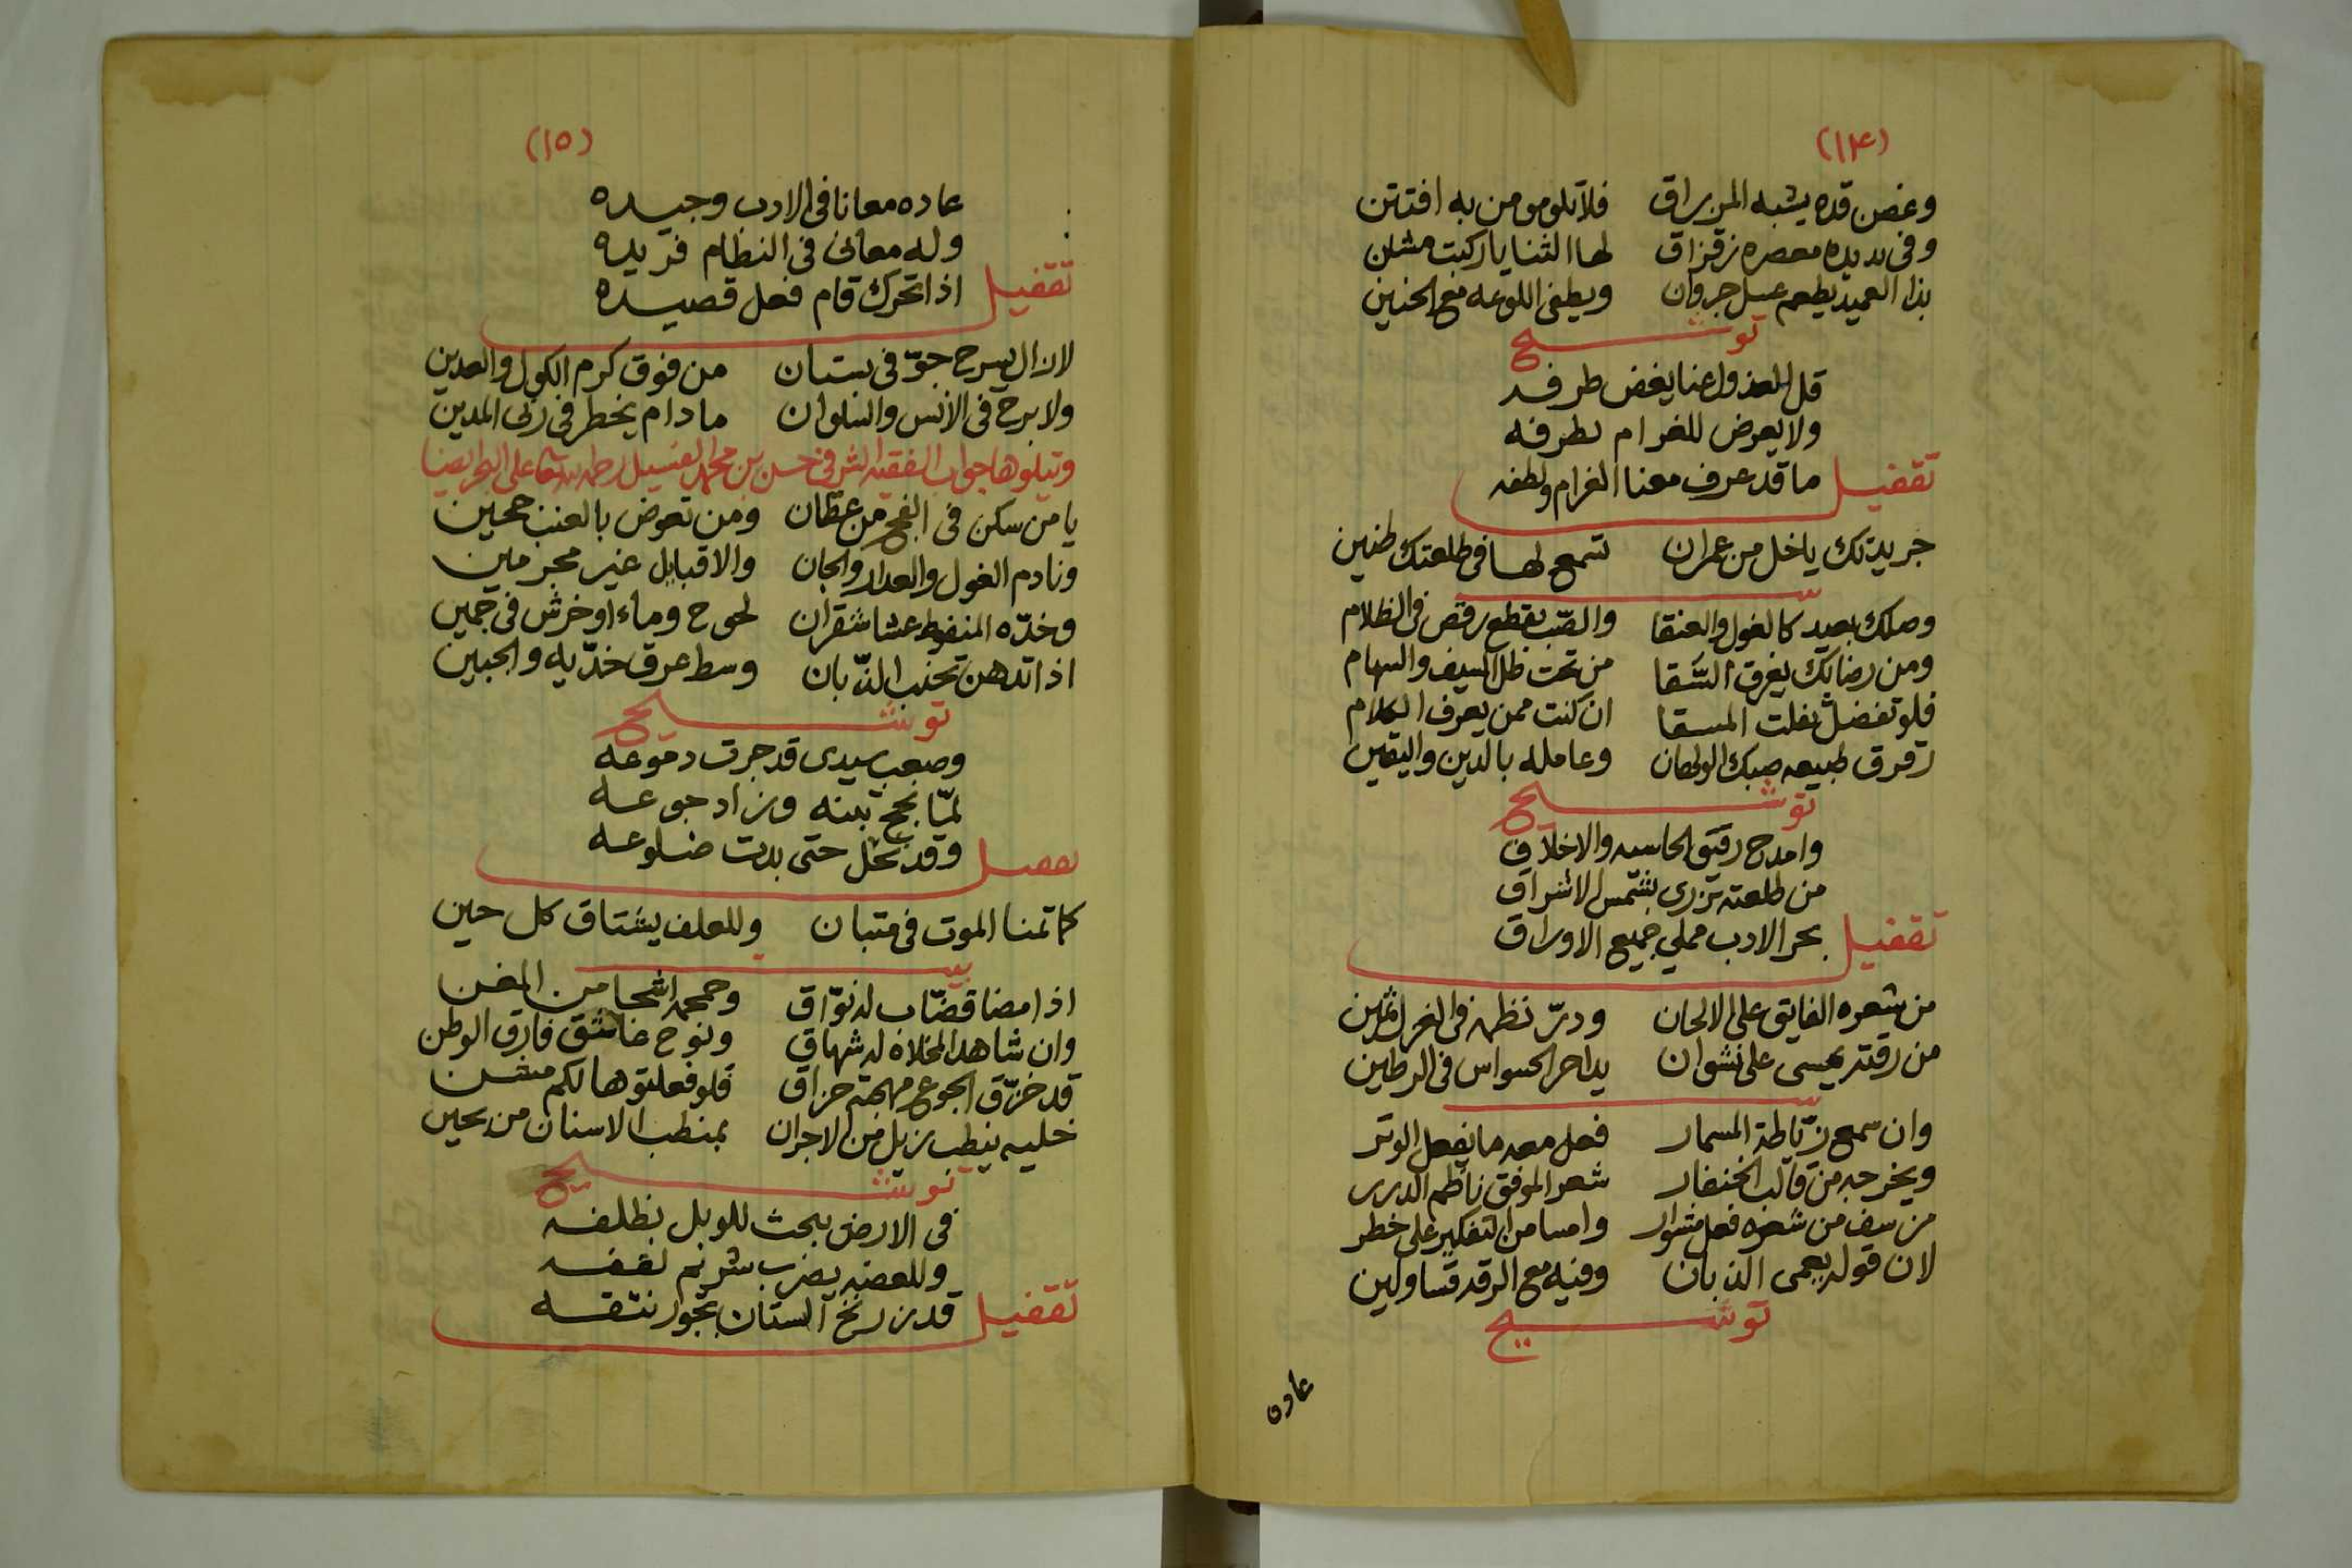 (١٤)
وغصن قده يشبه المزراق فلا تلومو من به افتتن
وفي يديده معصره زقزاق لها الثنايا ركبت مشن
بذا العميد يطعم عسل جردان ويطفي اللوعه مع الحنين
توشيح
قل للعذول عنا يغض طرفه
ولا يعرض للغرام بطرفه
تقفيل ما قد عرف معنا الغرام ولطفه
جريدتك ياخل من عمران تسمع لها في طلعتك طنين
بيت
وصلك بعيد كالغول والعنقا والصب يقطع رقص في الظلام
ومن رضابك يغرق السقا من تحت ظل السيف والسهام
فلو تفضل بفلت المسقا ان كنت ممن يعرف الكلام
زقرق طبيعه صبك الولهان وعامله بالدين واليقين
توشيح
وامدح رقيق الحاسيه والاخلاق
من طلعته تزري بشمس الاشراق
تقفيل بحر الادب مملي جميع الاوراق
من شعره الفايق على الالحان ودر نظمه في الغزل ثمين
من رقته يمسى على نشوان يداحر الحسواس في الرطين
بيت
وان سمع زناطة المسمار فعل معه ما يفعل الوتر
ويخرجه من قالب الخنفار شعر الموفق ناظم الدرر
من سف من شعره فعل منسوار وامسا من التفكير على خطر
لان قوله يعمى الذبان وفيه مع الرقه قساولين
توشيح
عاده
(١٥)
عاده معانا في الادب وجيده
وله معاني في النظام فريده
تقفيل اذا تحرك قام فعل قصيده
لازال يسرح جو في بستان من فوق كرم الكول والعدين
ولا برح في الأنس والسلوان مادام يخطر في ربى المدين
وتيلوها جواب الفقيه الشرفي حسن بن محمد الفسيل رحمه الله تعالى على البحر ايضا
يا من سكن في الفج من عظان ومن تعوض بالعنب حجين
ونادم الغول والعدار والجان والاقبايل غير مجرمين
وخده المنفوط عشا شقران لحوح وماء او خرش في خمين
اذا تدهن تجنب الذبان وسط عرق خديه والجبين
توشيح
وصعب سيدي قد جرت دموعه
لما نجح تبنه وزاد جوعه
تقفيل وقد نحل حتى بدت ضلوعه
كما تمنا الموت في متبان وللعلف يشتاق كل حين
بيت
اذا مضا قصاب له نواق وحمحمه اشجا من المغن
وان شاهد المخلاه له شهاق ونوح عاشق فارق الوطن
قد خرق الجوع مهجته حزاق فلو فعلتوها لكم منن
خليه ينطب زبل من الاجران بمنطب الاسنان من يحين
توشيح
في الارض يبحث للوبل بظلفه
وللعضه يضرب شرنم لقفه
تقفيل قد زرنخ الستان بجور نتفه